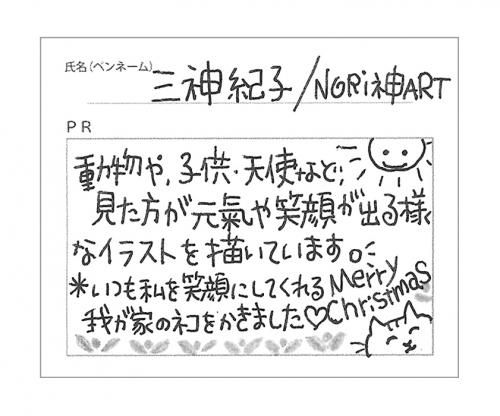 氏名(ペンネーム) 三神紀子/NORi神ART
PR
動物や、子供・天使など、
見た方が元氣や笑顔が出る様
なイラストを描いています。
*いつも私を笑顔にしてくれる
我が家のネコをかきました♡
Merry
Christmas